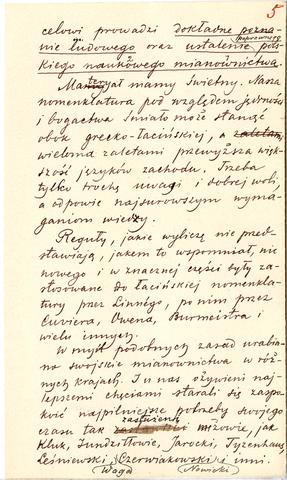 5
celowi prowadzi dokładne pozna-
nie ludowego oraz ustalenie poprawnego pols-
kiego naukowego mianownictwa.
Materyał mamy świetny. Nasza
nomenklatura pod względem jędrności
i bogactwa śmiało może stanąć
obok grecko-łacińskiej, a zaletami
wieloma zaletami przewyższa więk-
szość języków zachodu. Trzeba
tylko trochę uwagi i dobrej woli,
a odpowie najsurowszym wyma-
ganiom wiedzy.
Reguły, jakie wyliczę nie przed-
stawiają, jakem to wspomniał, nic
nowego i w znacznej części były za-
stosowane do łacińskiej nomenkla-
tury przez Linnego, po nim przez
Cuviera, Owena, Burmeistra i
wielu innych.
W myśl podobnych zasad urabia-
no swojskie mianownictwa w róż-
nych krajach. I u nas ożywieni naj-
lepszemi chęciami starali się zaspo-
koić najpilniejsze potrzeby swojego
czasu tak zasłużeni mężowie, jak
Kluk, Jundziłłowie, Jarocki, Tyzenhauz,
Leśniewski, Czerwiakowski i inni.
Waga Nowicki